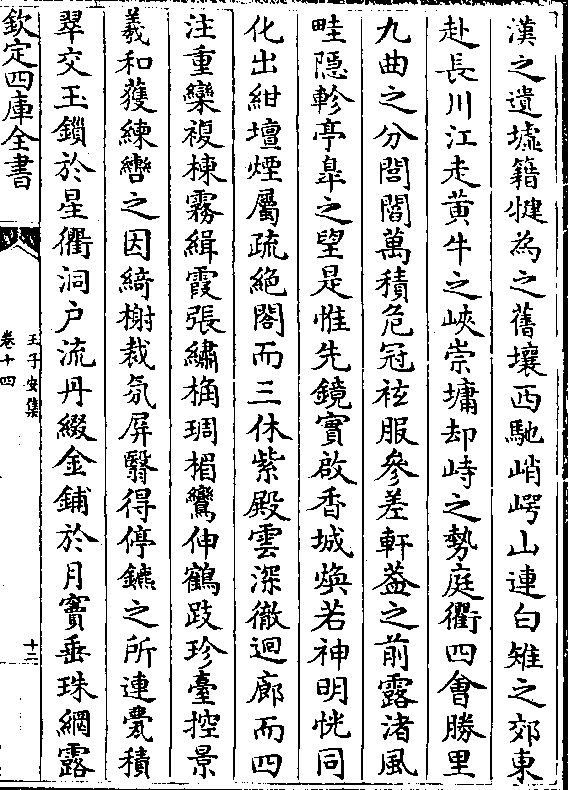 漢之遺墟籍犍為之舊壤西馳峭崿山連白雉之郊東
赴長川江走黄牛之峽崇墉却峙之勢庭衢四會勝里
九曲之分閭閻萬積危冠袨服參差軒葢之前露渚風
畦隱軫亭臯之望是惟先鏡實啟香城煥若神明恍同
化出紺壇煙屬疏絶閣而三休紫殿雲深徹迴廊而四
注重欒複棟霧緝霞張繡桷琱楣鸞伸鶴跂珍臺控景
羲和䕶練轡之因綺榭裁氛屏翳得停鑣之所連甍積
翠交玉鎖於星衢洞户流丹綴金鋪於月竇垂珠網露
欽定四庫全書
王子安集
卷十四
十三